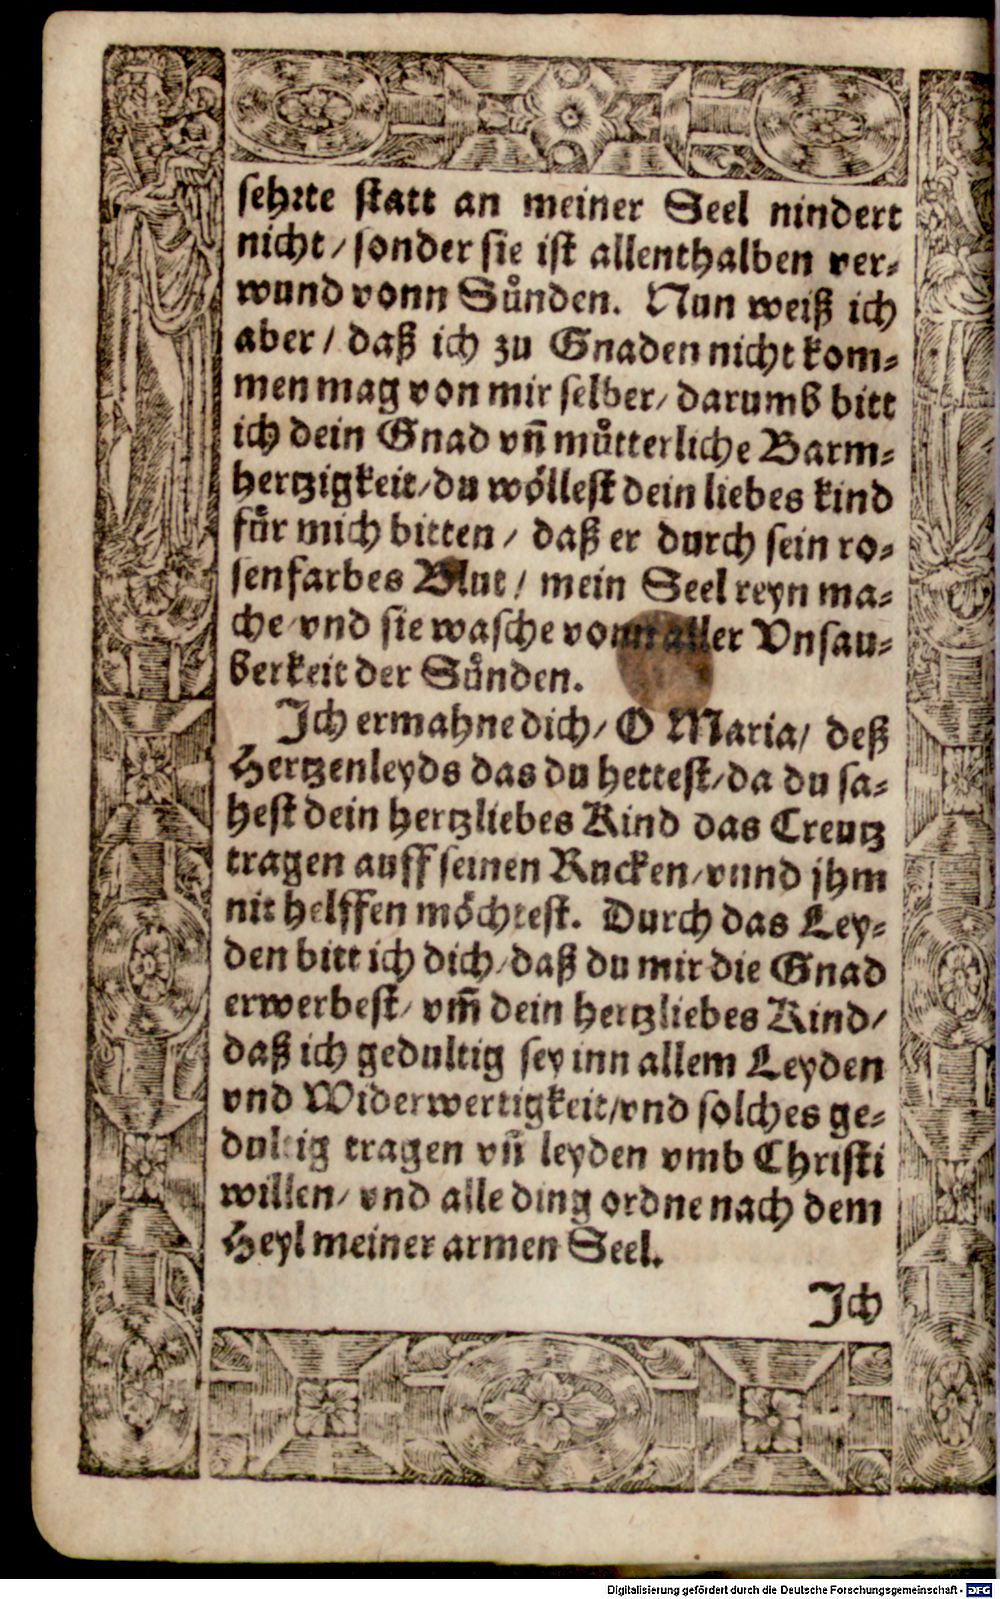 sehrte statt an meiner Seel nindert
nicht / sonder sie ist allenthalben ver⸗
wund vonn Sůnden. Nun weiß ich
aber / daß ich zu Gnaden nicht kom⸗
men mag von mir selber / darumb bitt
ich dein Gnad vñ můtterliche Barm⸗
hertzigkeit / du wöllest dein liebes kind
fůr mich bitten / daß er durch sein ro⸗
senfarbes Blut / mein Seel reyn ma⸗
che / vnd sie wasche vonn aller Vnsau⸗
berkeit der Sůnden.
Ich ermahne dich / O Maria / deß
Hertzenleyds das du hettest / da du sa⸗
hest dein hertzliebes Kind das Creutz
tragen auff seinen Rucken / vnnd jhm
nit helffen möchtest. Durch das Ley⸗
den bitt ich dich / daß du mir die Gnad
erwerbest / vm̃ dein hertzliebes Kind /
daß ich gedultig sey inn allem Leyden
vnd Widerwertigkeit / vnd solches ge⸗
dultig tragen vñ leyden vmb Christi
willen / vnd alle ding ordne nach dem
Heyl meiner armen Seel.
Ich
Digitalisierung gefördert durch die Deutsche Forschungsgemeinschaft - DFG